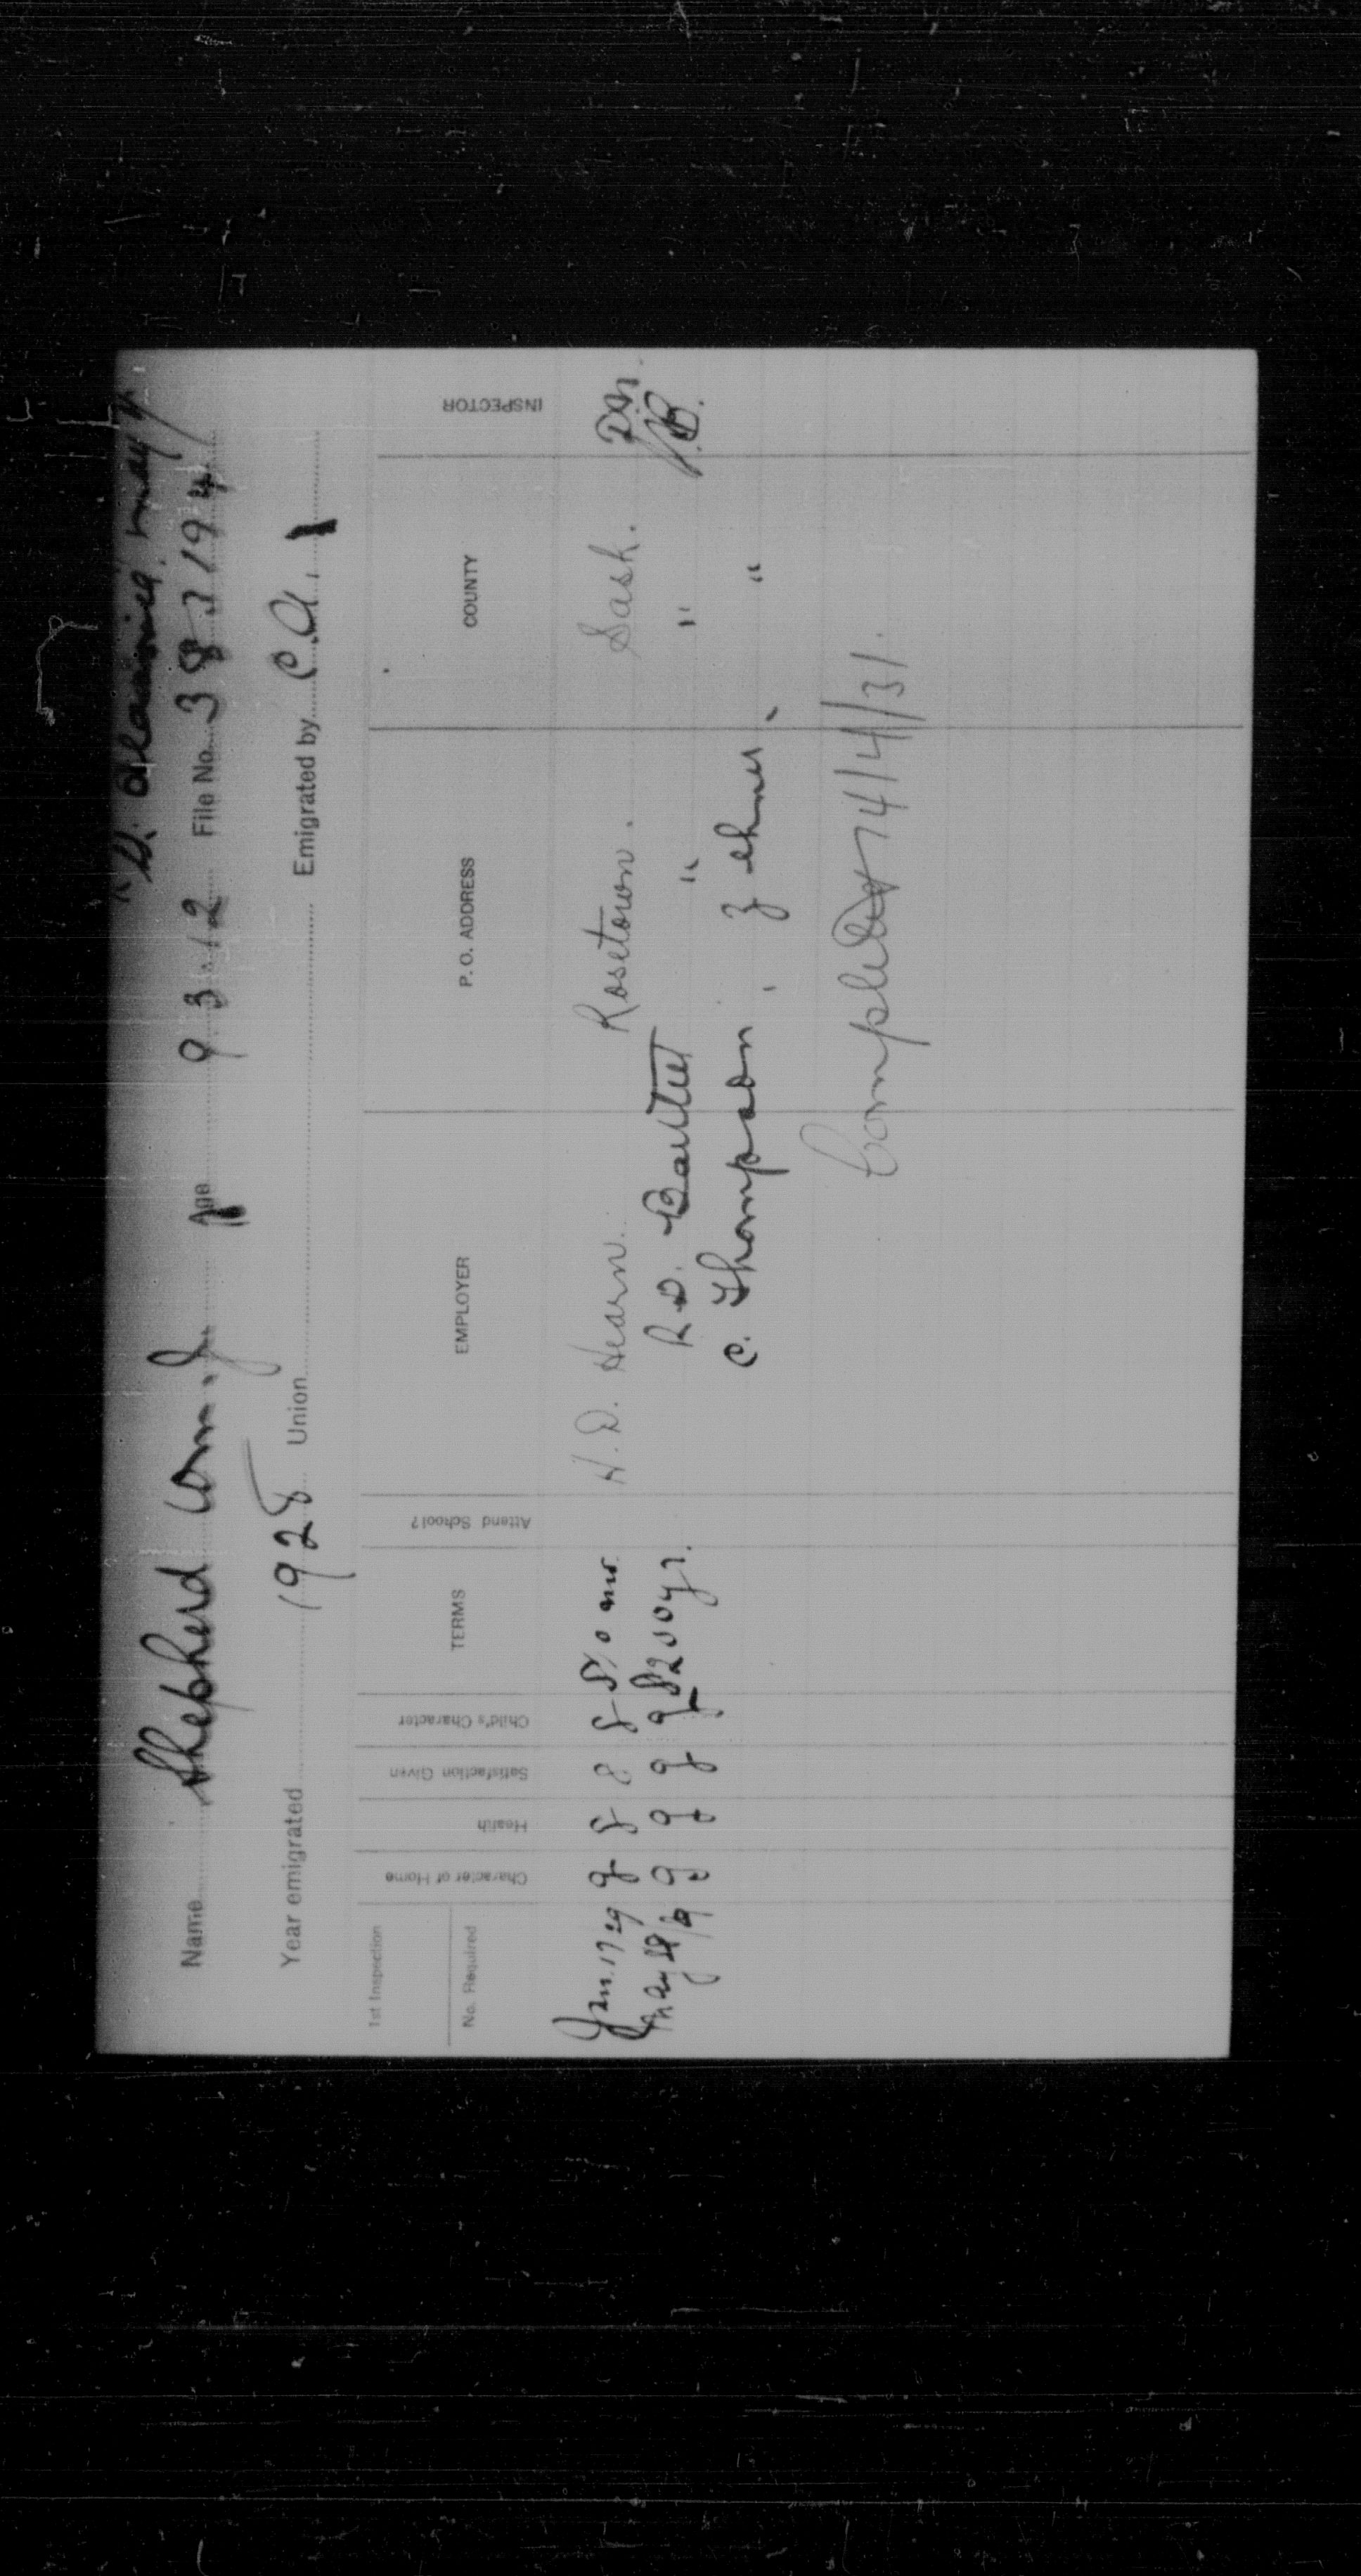 May 4
Name Shepherd Wm. J Age 9.3.12 File No. 383194
Year emigrated 1928 Union Emigrated by C.A.
1st Inspection
No. Required Character of Home Health Satisfaction Given Child's Character TERMS Attend School? EMPLOYER P. O. ADDRESS COUNTY INSPECTOR
Jan. 17 29 g g g g H. D. Hearn. Rosetown. Sask.
May g g g g $200 yr. R D. " "
C. Thompson. "
Completed 4/31